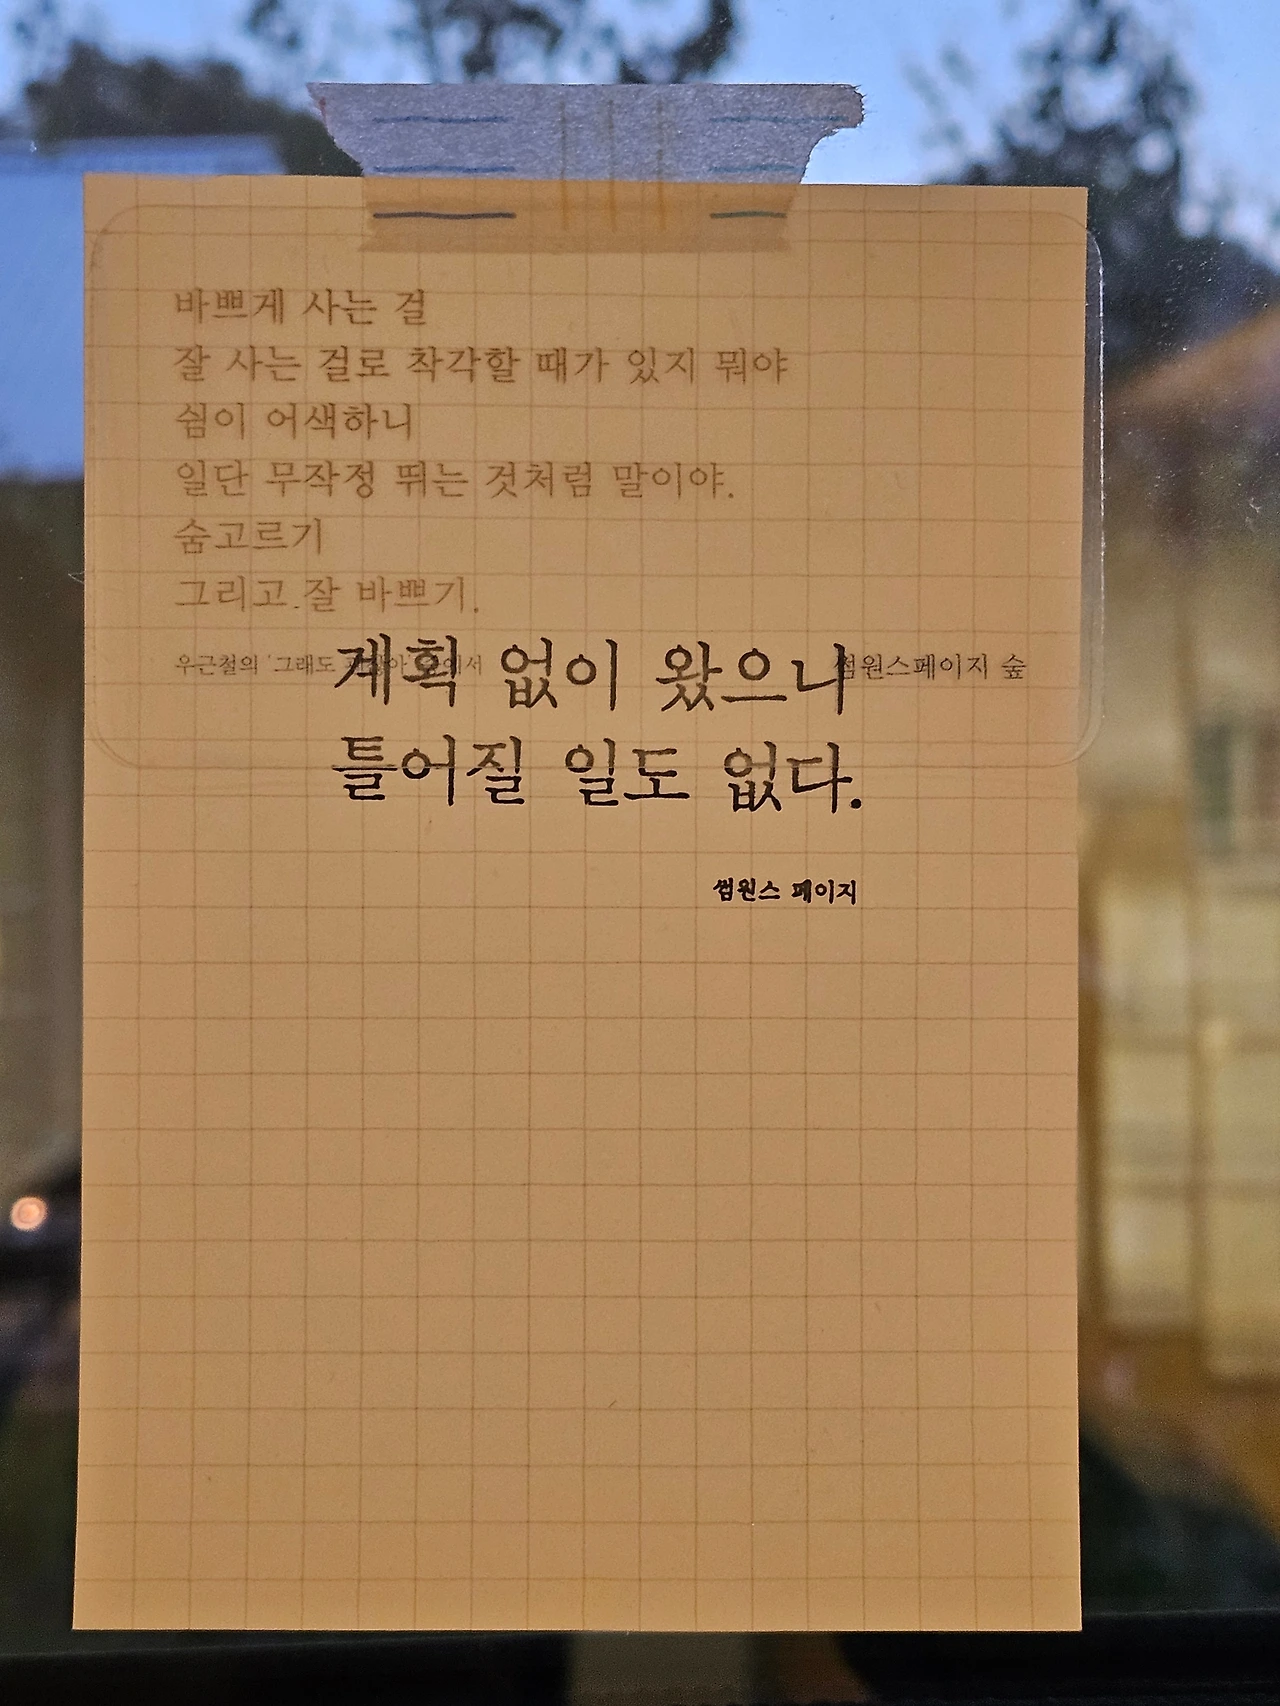 바쁘게 사는 걸
잘 사는 걸로 착각할 때가 있지 뭐야
쉼이 어색하니
일단 무작정 뛰는 것처럼 말이야.
숨고르기
그리고 잘 바쁘기.
우근철의 '그래도
썸원스페이지 숲
계획 없이 왔으니
틀어질 일도 없다.
썸원스 페이지